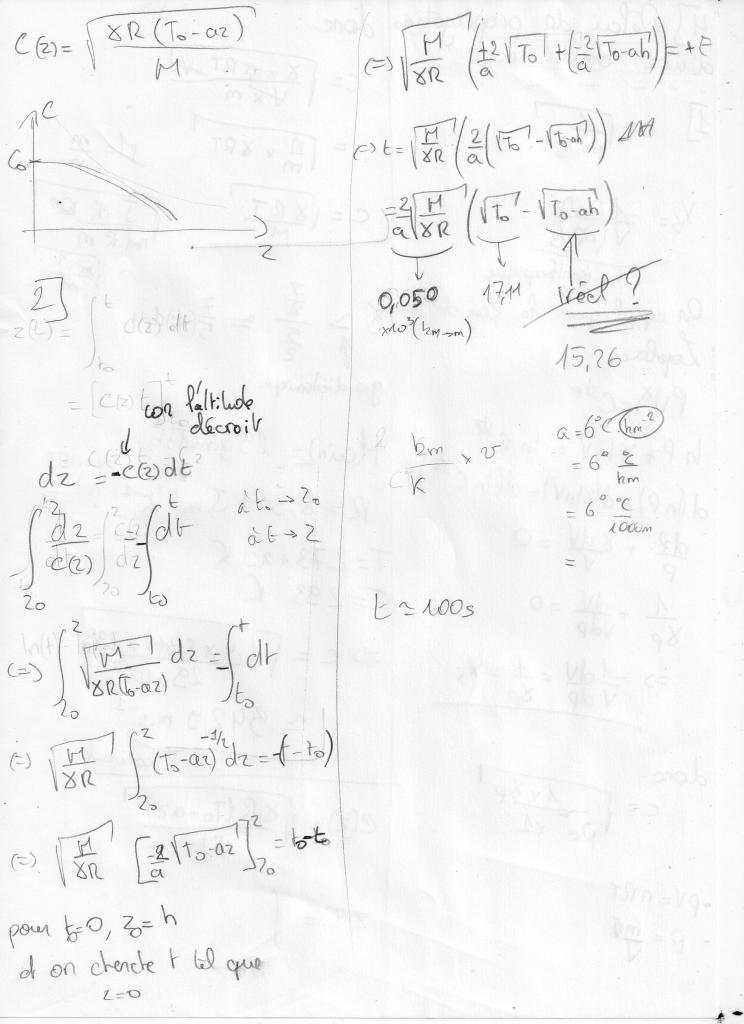 C(z) = √(γR(T₀-az)/M)
C
C₀
z
2]
z(t) = ∫_{t₀}^{t} C(z) dt
= [C(z) t]
car l'altitude
décroit
dz = -C(z) dt
∫_{z₀}^{z} dz/C(z) = -∫_{t₀}^{t} dt
à t₀ → z₀
à t → z
(=) ∫_{z₀}^{z} √(M/γR(T₀-az)) dz = -∫_{t₀}^{t} dt
(=) √(M/γR) ∫_{z₀}^{z} (T₀-az)^{-1/2} dz = -(t-t₀)
(=) √(M/γR) [-2/a √(T₀-az)]_{z₀}^{z} =
pour t₀=0, z₀=h
et on cherche t tel que
z=0
(=) √(M/γR) (+2/a √T₀ + (-2/a √(T₀-ah))) = +t
(=) t = √(M/γR) (2/a (√T₀ - √(T₀-ah)))
= 2/a √(M/γR) (√T₀ - √(T₀-ah))
0,050
×10³ (km→m)
17,11
irréel ?
15,26
km/K × v
a = 6°C.km⁻²
= 6° °C/km
= 6° °C/1000m
=
t ≃ 100s